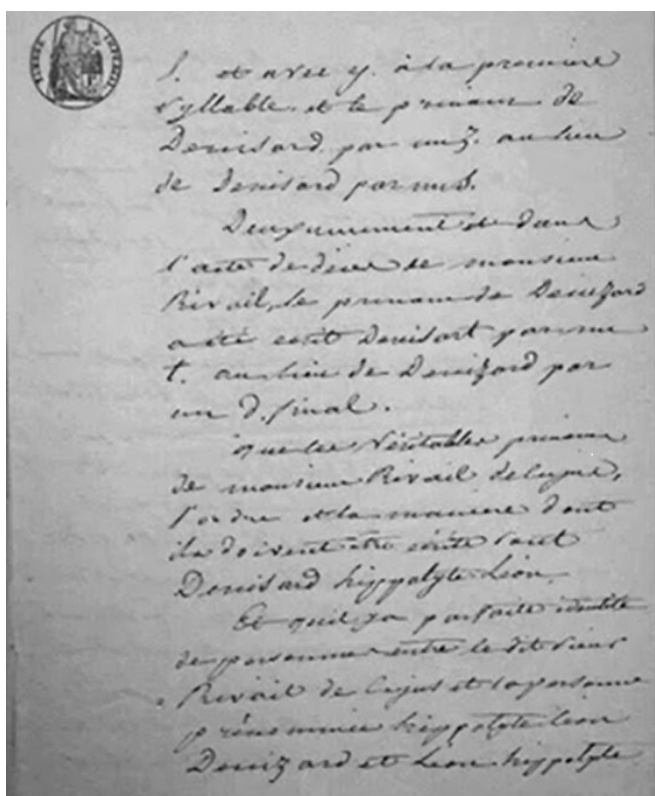 l. et avec y. à la première
syllable. et le prénom de
Denisard. par un z. au lieu
de Denisard par un s.
Deuxièmement et dans
l'acte de décès de monsieur
Rivail, le prénom de Denizard
a été écrit Denisart par un
t. au lieu de Denizard par
un D. final.
que les véritables prénoms
de monsieur Rivail de cujus,
l'ordre et la manière dont
ils doivent être écrits sont
Denisard hippolyte Léon.
Et qu'il y a parfaite identité
de personnes entre le dit sieur
Rivail de cujus et la personne
prénommée hippolyte Léon
Denizard et Léon hippolyte